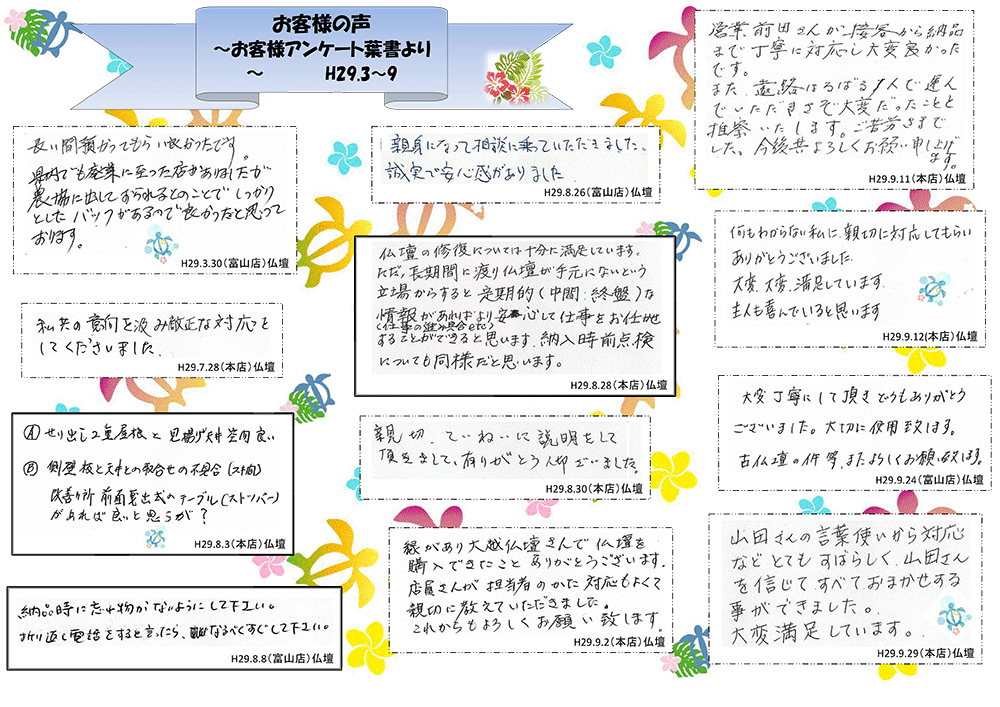 お客様の声
～お客様アンケート葉書より
～ H29.3～9
長い間預かってもらい良かったです。
県内でも廃業に至った店がありましたが
農協に出しておられるとのことでしっかり
としたバックがあるので良かったと思って
おります。
H29.3.30(富山店)仏壇
私共の意向を汲み敏正な対応を
してくださいました
H29.7.28(本店)仏壇
Ⓐ せり出し2重屋根と見揚げ天井空間良い
Ⓑ 側壁板と天井との和合せの不具合(スキ間)
改善ヶ所 前面裏出式のテーブル(ストッパー)
があれば良いと思うが?
H29.8.3(本店)仏壇
納品時に忘れ物がなようにして下さい。
折り返し電話をすると言ったら、なるべくすぐして下さい。
H29.8.8(富山店)仏壇
親身になって相談に乗っていただきました。
誠実で安心感がありました
H29.8.26(富山店)仏壇
仏壇の修復については十分に満足しています。
ただ、長期間に渡り仏壇が手元にないという
立場からすると定期的(中間:終盤)な
情報があればより安心して仕事をお任せ
(仕事の進み具合etc)
することができると思います。納入時前点検
についても同様だと思います。
H29.8.28(本店)仏壇
親切、ていねいに説明をして
頂きまして、有りがとう御ざいました。
H29.8.30(本店)仏壇
縁があり大越仏壇さんで仏壇を
購入できたことありがとうございます。
店員さんが担当者のかた対応もよくて
親切に教えていただきました。
これからもよろしくお願い致します。
H29.9.2(本店)仏壇
営業前田さんが接客から納品
まで丁寧に対応し大変良かった
です。
また、遠路はるばる1人で運ん
でいただきさぞ大変だったことと
推察いたします。ご苦労さまで
した。今後共よろしくお願い申し上げ
ます。
H29.9.11(本店)仏壇
何もわからない私に、親切に対応してもらい
ありがとうございました
大変、大変、満足しています
主人も喜んでいると思います
H29.9.12(本店)仏壇
大変丁寧にして頂きどうもありがとう
ございました。大切に使用致します。
古仏壇の件等、またよろしくお願い致します。
H29.9.24(富山店)仏壇
山田さんの言葉使いから対応
などとてもすばらしく、山田さん
を信じてすべておまかせする
事ができました。
大変満足しています。
H29.9.29(本店)仏壇